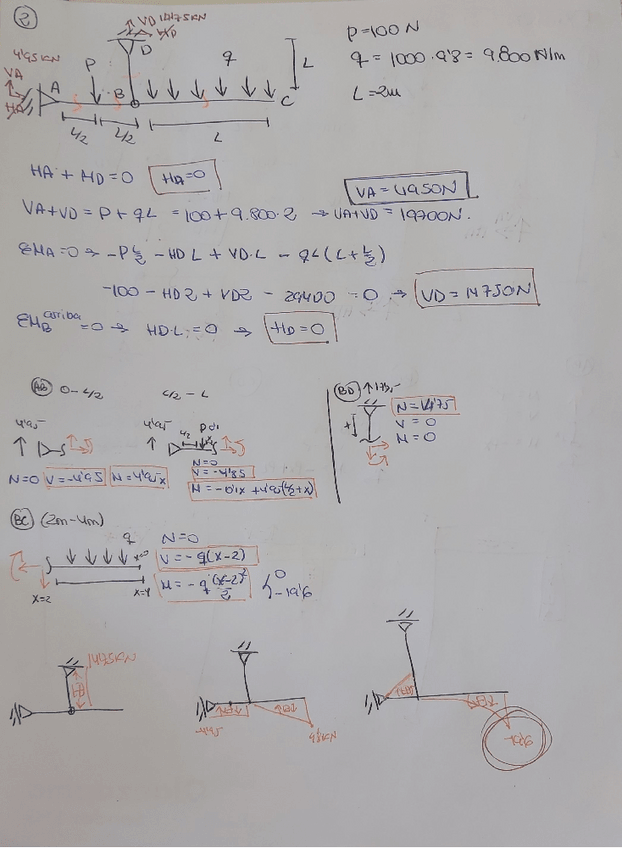 ②
VD 14'75KN
HD
D
P=100N
q = 1000·9'8 = 9.800 N/m
L=2m
4'95KN
VA
HA
A
P
B
q
C
L
L/2
L/2
L
HA + HD=0
HA=0
VA=4950N
VA+VD = P+qL = 100+9.800·2 → VA+VD = 19700N.
ΣMA=0 → -P L/2 - HD L + VD·L - qL(L+L/2)
-100 - HD2 + VD2 - 29400 = 0 → VD=14750N
ΣMB arriba =0 → HD·L=0 → HD=0
AB 0-L/2
L/2 - L
BD
4'95
4'95
L/2
N=14'75
V=0
M=0
N=0 V=-4'95 M=4'95x
N=0
V=-4'85
M=-0'1x+4'95(L/2+x)
BC (2m-4m)
q
x=2
x=4
N=0
V=-q(x-2)
M=-q(x-2)²/2
0
-19'6
14'75KN
-4'95